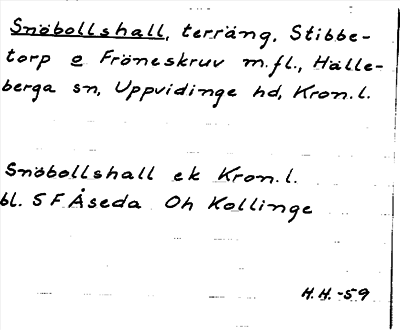 Snöbollshall, terräng, Stibbe-
torp o Fröneskruv m.fl., Hälle-
berga sn, Uppvidinge hd, Kron.l.
Snöbollshall ek Kron.l.
bl. S F Åseda Oh Kollinge
H.H.-59